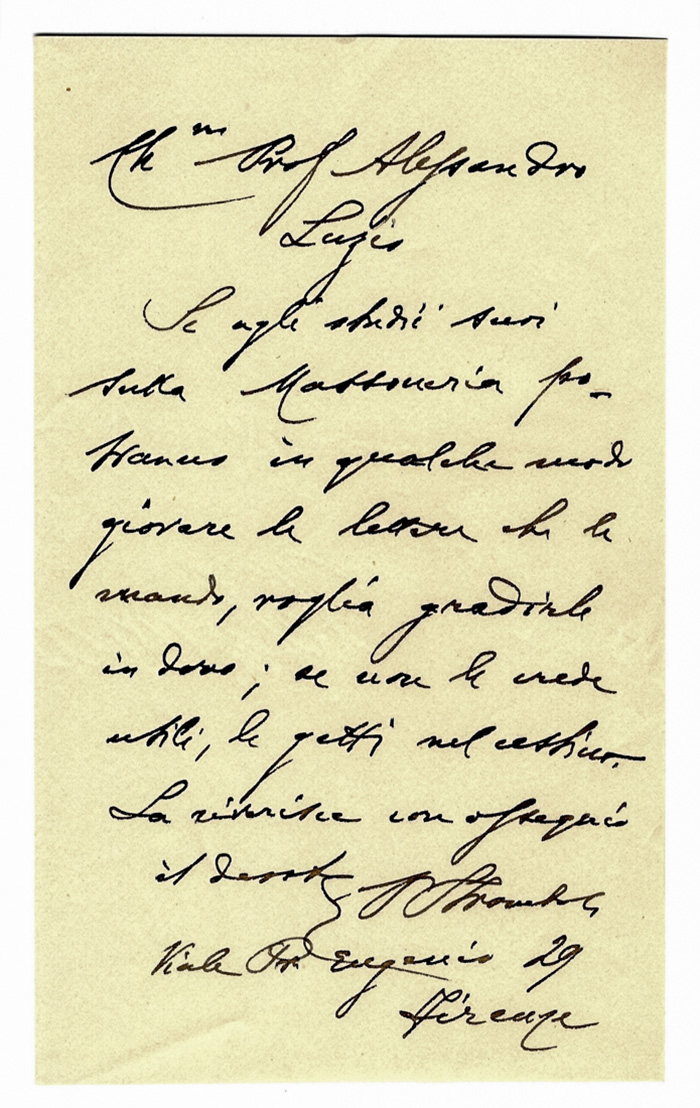 Ch.mo Prof Alessandro
Luzio
Se agli studii suoi
sulla Massoneria po-
tranno in qualche modo
giovare le lettere che le
mando, voglia gradirle
in dono; se non le crede
utili, le getti nel cestino.
La riverisce con ossequio
il devoto P Stromboli
Viale Pr. Eugenio 29
Firenze